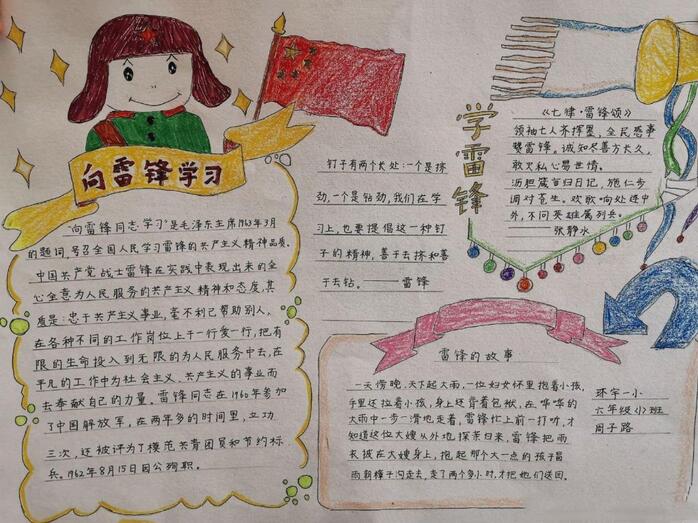 向雷锋学习
"向雷锋同志学习"是毛泽东主席1963年3月
的题词,号召全国人民学习雷锋的共产主义精神品质.
中国共产党战士雷锋在实践中表现出来的全
心全意为人民服务的共产主义精神和态度,其
实是:忠于共产主义事业,毫不利己帮助别人,
在各种不同的工作岗位上干一行爱一行,把有
限的生命投入到无限的为人民服务中去,在
平凡的工作中为社会主义、共产主义的事业而
去奉献自己的力量。雷锋同志在1960年参加
了中国解放军,在两年多的时间里,立功
三次,还被评为了模范共青团员和节约标
兵。1962年8月15日因公殉职.
钉子有两个长处:一个是挤
劲,一个是钻劲,我们在学
习上,也要提倡这一种钉
子的精神,善于去挤和善
于去钻。——雷锋
学雷锋
《七律·雷锋颂》
领袖七人齐挥墨,全民感事
赞雷锋,诚知尽善方长久,
敢灭私心易世情。
沥胆箴言归日记,施仁步
调对苍生。欢歌响处进中
外,不问英雄属列兵。
——张静水
雷锋的故事
一天傍晚,天下起大雨,一位妇女怀里抱着小孩,
手里还拉着小孩,身上还背着包袱,在哗哗的
大雨中一步一滑地走着,雷锋忙上前一打听,才
知道这位大嫂从外地探亲归来,雷锋把雨
衣披在大嫂身上,抱起那个大一点的孩子冒
雨朝樟子沟走去,走了两个多小时,才把她们送回。
环宇一小
六年级(2)班
周子路